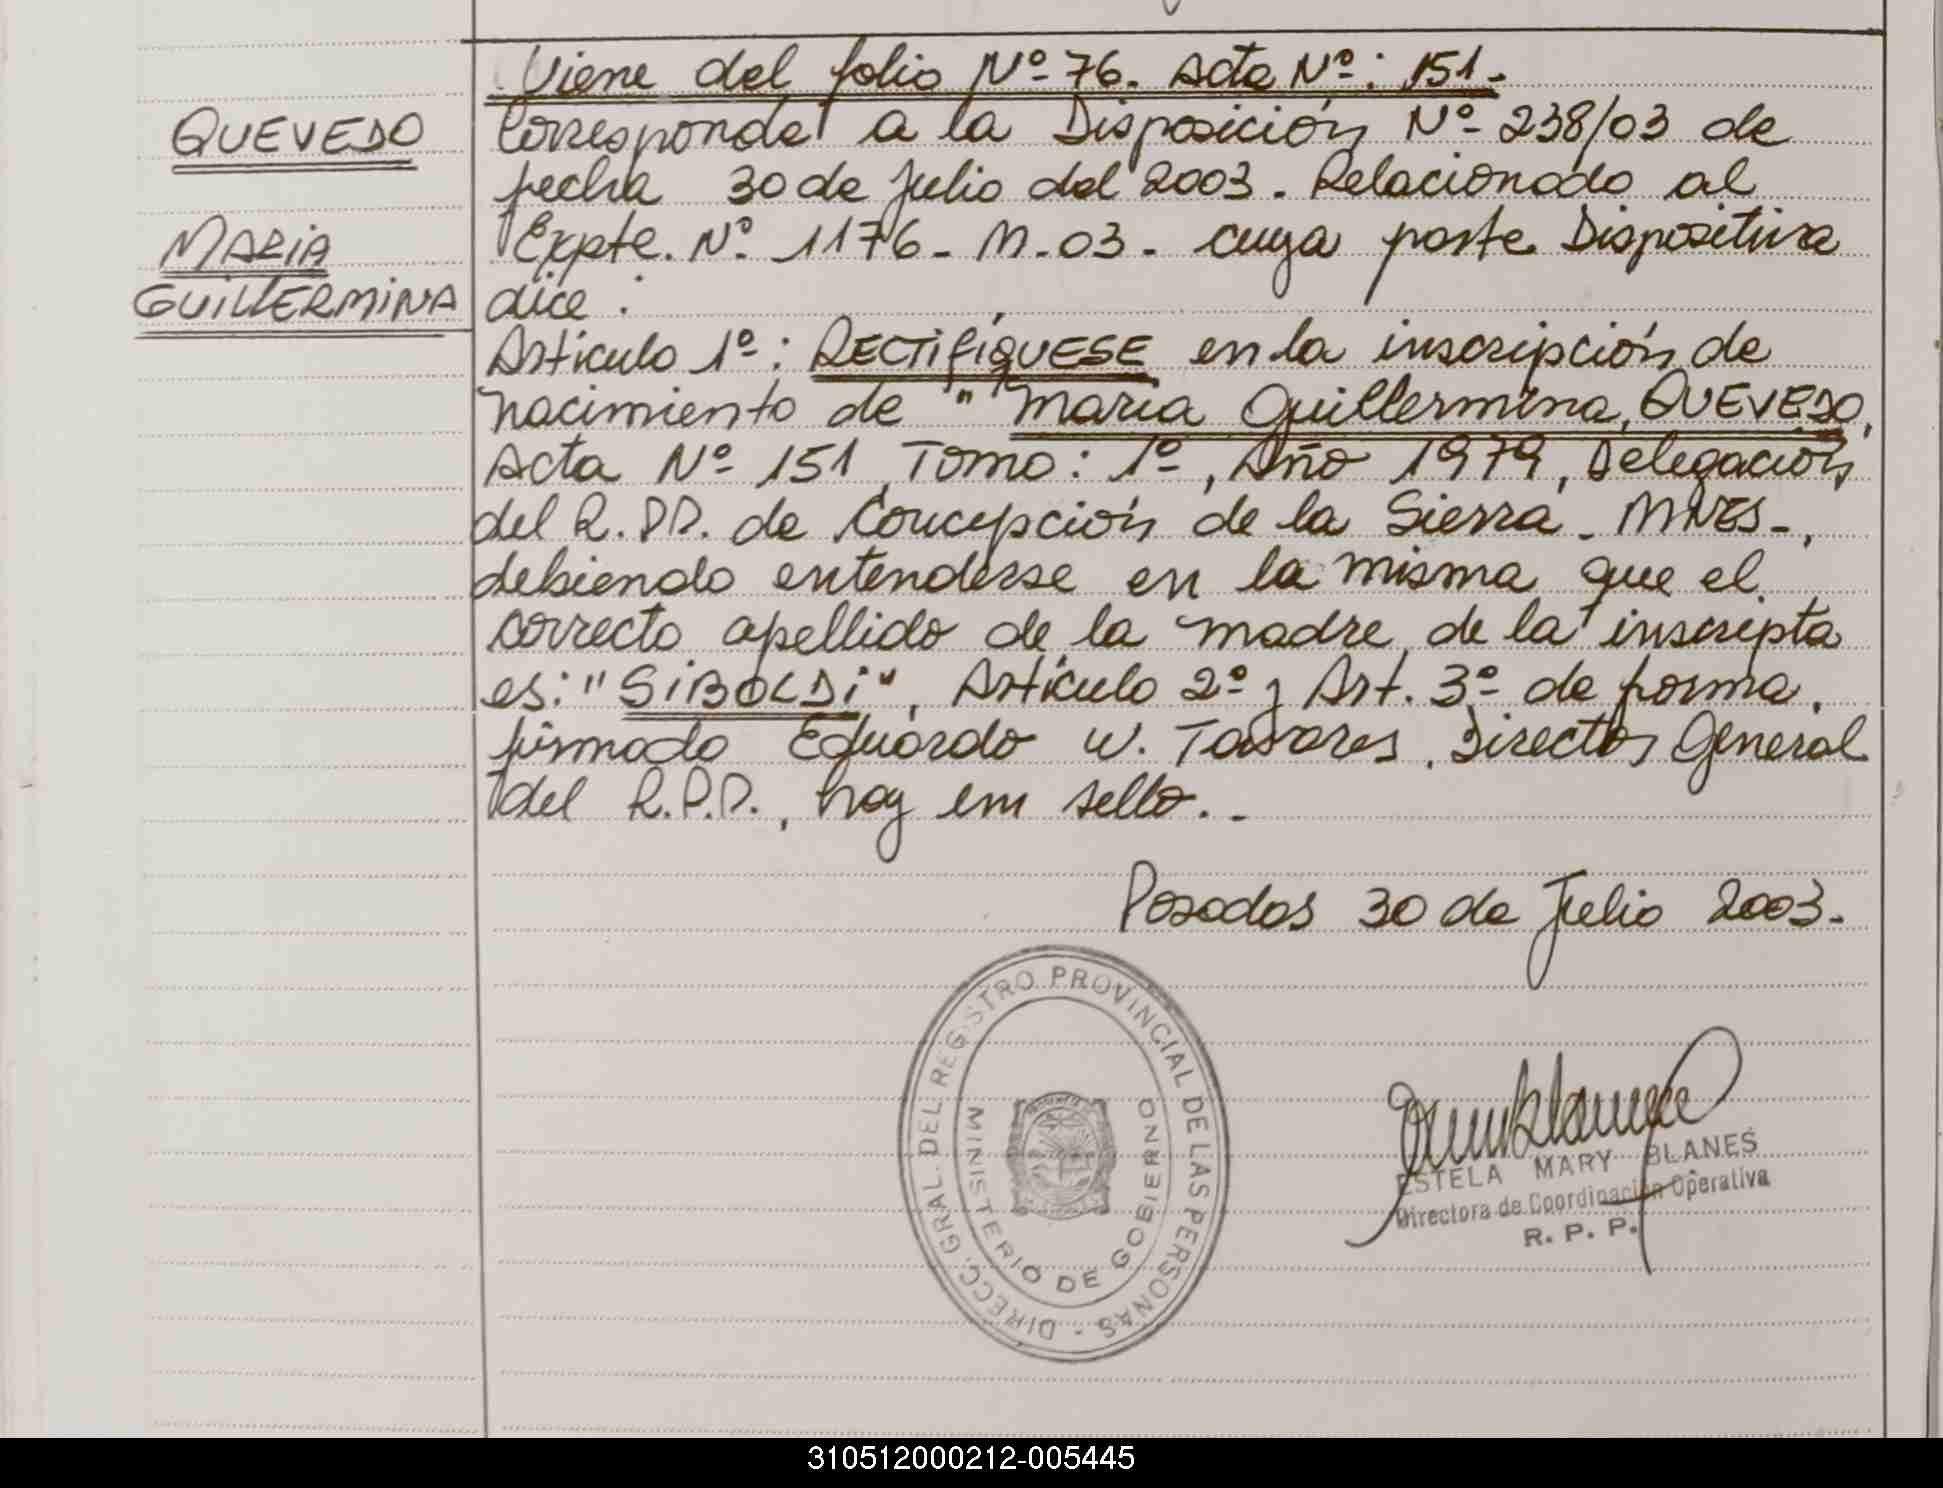 Viene del folio Nº 76. Acta Nº: 151.
QUEVEDO
MARIA
GUILLERMINA
Corresponde a la Disposición Nº 238/03 de
fecha 30 de Julio del 2003. Relacionado al
Expte. Nº 1176-M-03- cuya parte Dispositiva
dice:
Artículo 1º: RECTIFÍQUESE en la inscripción de
nacimiento de "Maria Guillermina, QUEVEDO,
Acta Nº 151, Tomo: 1º, Año 1979, Delegación
del R.P.P. de Concepción de la Sierra - MNES-,
debiendo entenderse en la misma que el
correcto apellido de la madre de la inscripta
es: "SIBOLDI", Artículo 2º y Art. 3º de forma,
firmado Eduardo W. Tavares, Director General
del R.P.P., hay un sello..-
Posadas 30 de Julio 2003.-
DIRECC. GRAL. DEL REGISTRO PROVINCIAL DE LAS PERSONAS -
MINISTERIO DE GOBIERNO
ESTELA MARY BLANES
Directora de Coordinación Operativa
R. P. P.
310512000212-005445